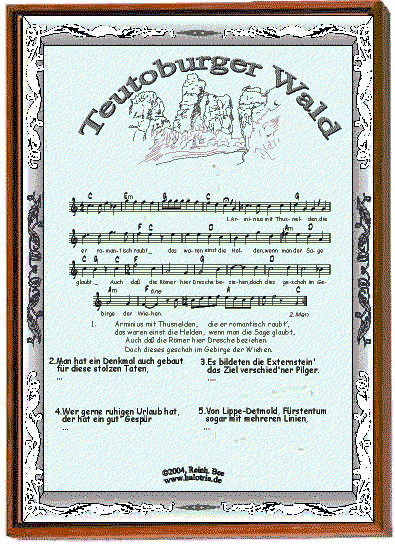 Teutoburger Wald
C Em G C G
1.Ar- mi-nius mit Thus-nel- den,die
Am F C Am D G
er ro-man-tisch raubt, das wa-ren einst die Hel- den,wenn man der Sa-ge
C G C F C G C
glaubt. Auch daß die Römer hier Dresche be- zie-hen,doch dies ge-schah im Ge-
Am F fine A C
birge der Wie-hen. 2.Man
1. Arminius mit Thusnelden, die er romantisch raubt',
das waren einst die Helden, wenn man die Sage glaubt,
Auch daß die Römer hier Dresche beziehen.
Doch dieses geschah im Gebirge der Wiehen.
2.Man hat ein Denkmal auch gebaut
für diese stolzen Taten,
...
3.Es bildeten die Externstein'
das Ziel verschied'ner Pilger.
....
4.Wer gerne ruhigen Urlaub hat,
der hat ein gut' Gespür
...
5.Von Lippe-Detmold, Fürstentum
sogar mit mehreren Linien,
...
©2004, Reinh. Bee
www.halotria.de